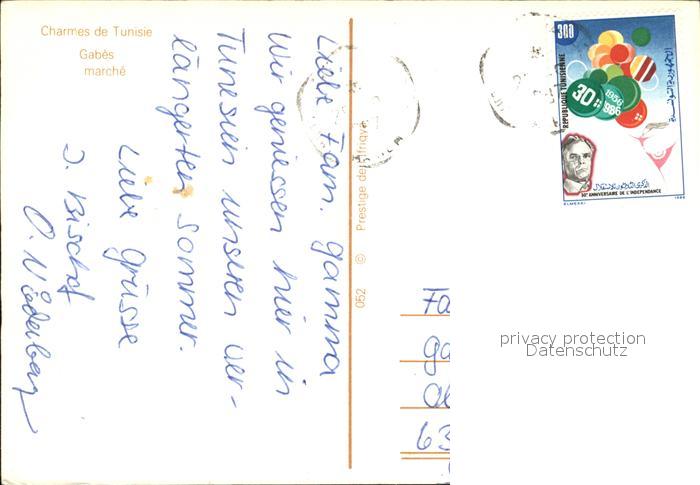 Charmes de Tunisie
Gabès
marché
Liebe Fam. Gamma
Wir geniessen hier in
Tunesien unseren ver-
längerten Sommer.
Liebe Grüsse
J. Bischof
O. Niederberg
052 © Prestige de l'Afrique
300
REPUBLIQUE TUNISIENNE
الجمهورية التونسية
30
1956
1986
30e ANNIVERSAIRE DE L'INDEPENDANCE
ELMEKKI
1986
Fa
Ga
63
privacy protection
Datenschutz